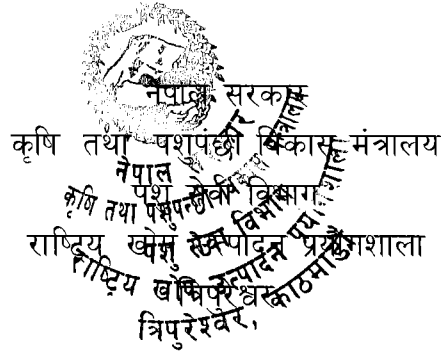 नेपाल सरकार
कृषि तथा पशुपंछी विकास मंत्रालय
पशु सेवा विभाग
राष्ट्रिय खोप उत्पादन प्रयोगशाला
त्रिपुरेश्वर
नेपाल सरकार
कृषि तथा पशुपन्छी विकास मन्त्रालय
पशु सेवा विभाग
राष्ट्रिय खोप उत्पादन प्रयोगशाला
त्रिपुरेश्वर, काठमाडौं